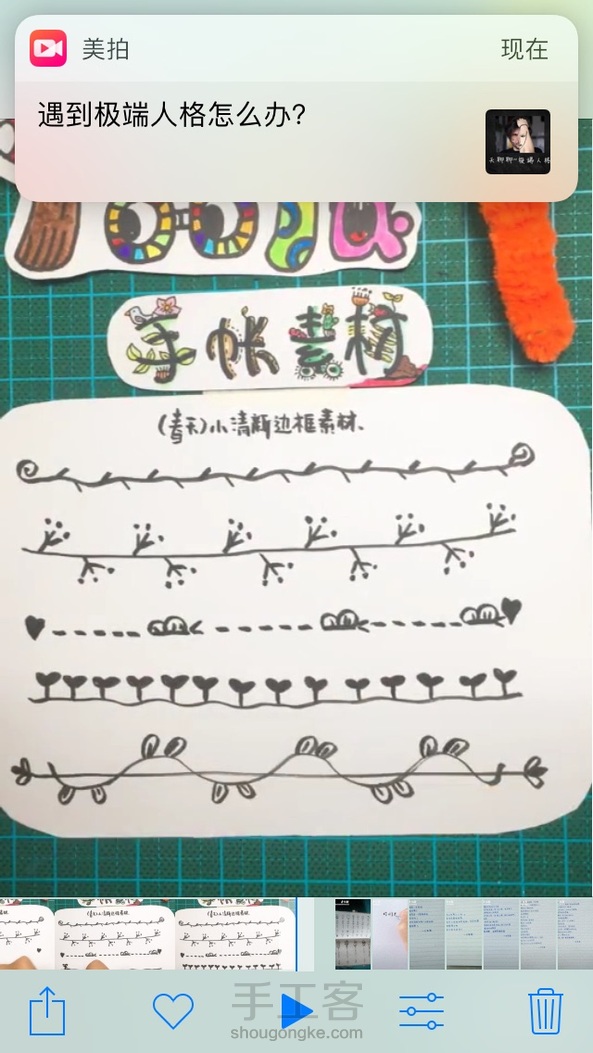 美拍 现在
遇到极端人格怎么办?
手帐素材
(春天)小清新边框素材.
手工客
shougongke.com